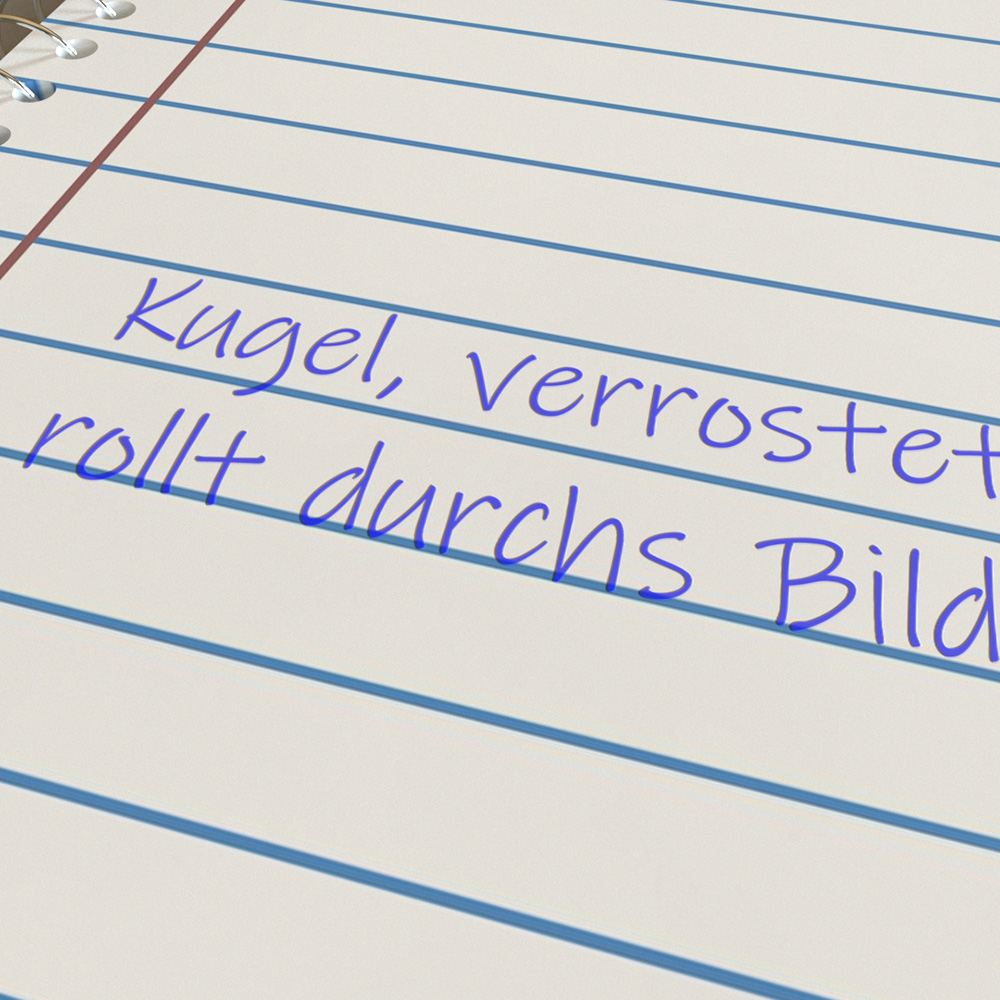 Kugel, verrostet
rollt durchs Bild